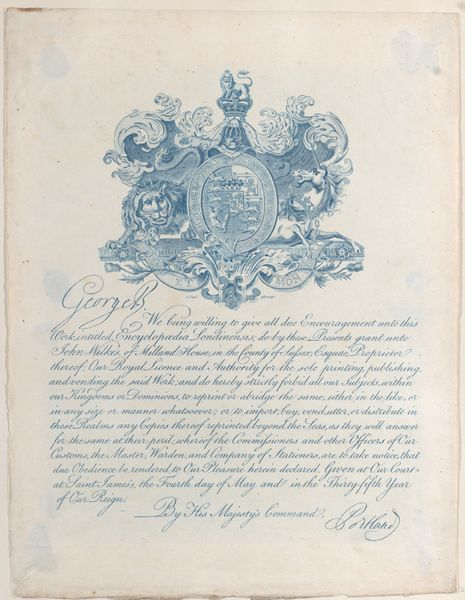 DIEU
ET
MON
George R
We being willing to give all due Encouragement unto this
Work, entitled, Encyclopædia Londinensis; do by these Presents grant unto
John Wilkes, of Milland House, in the County of Sussex, Esquire, Proprietor
thereof, Our Royal Licence and Authority for the sole printing, publishing,
and vending the said Work; and do hereby strictly forbid all our Subjects, within
our Kingdoms or Dominions, to reprint or abridge the same, either in the like, or
in any size or manner whatsoever; or to import, buy, vend, utter, or distribute in
these Realms any Copies thereof reprinted beyond the Seas, as they will answer
for the same at their peril; whereof the Commissioners and other Officers of Our
Customs, the Master, Warden, and Company of Stationers, are to take notice, that
due Obedience be rendered to Our Pleasure herein declared. Given at Our Court
at Saint James's, the Fourth day of May and in the Thirty-fifth Year
of Our Reign.
By His Majesty's Command,
Portland